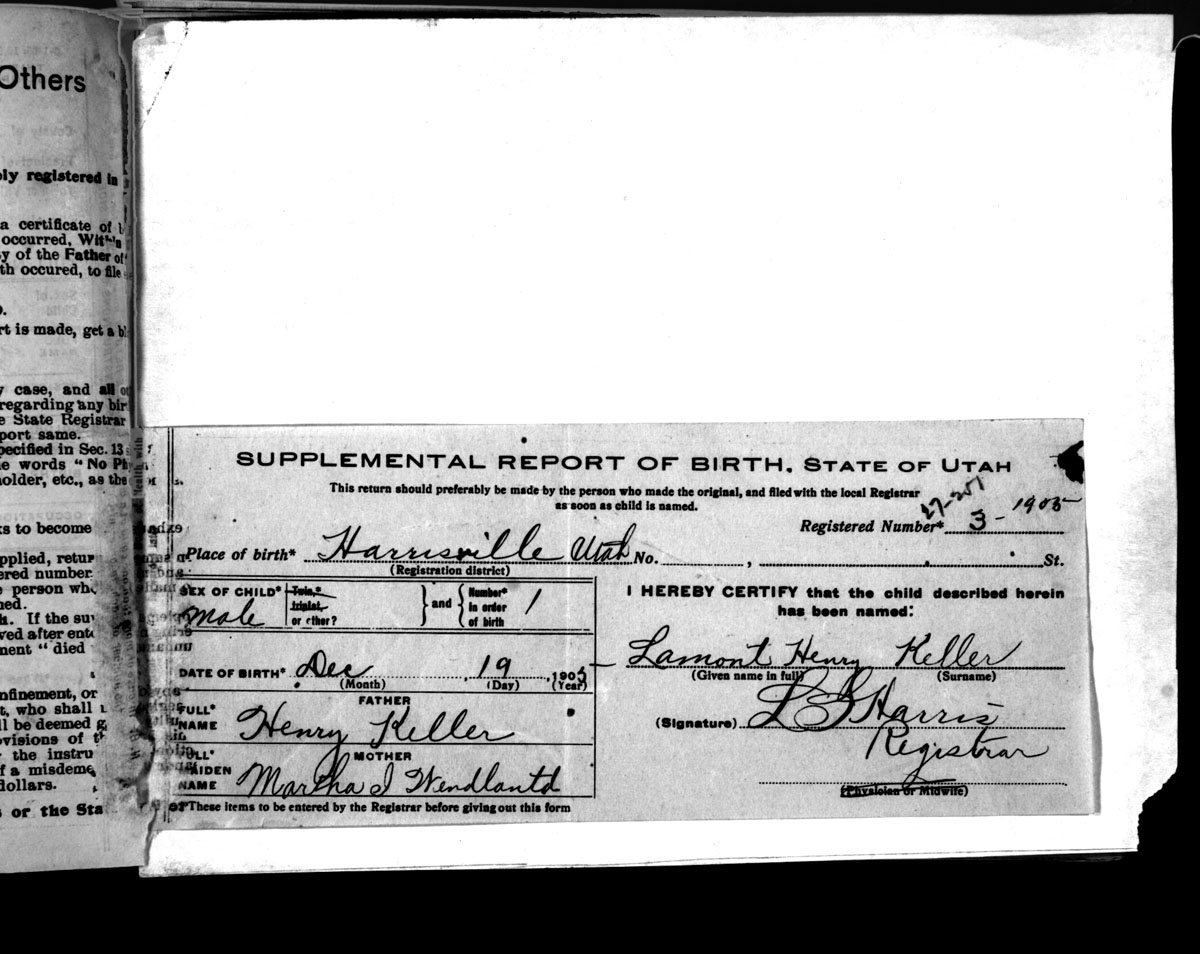 Others
registered in
a certificate of
occurred,
y of the Father of
th occured, to file
rt is made, get a
y case, and all
regarding any bir
e State Registrar
port same.
pecified in Sec. 13
e words "No
holder, etc., as the
ks to become
pplied, retur
ered number
e person who
ned.
h. If the su
ved after ente
ment "died
nfinement, or
t, who shall
ll be deemed g
ovisions of
the instru
f a misdeme
dollars.
s or the Sta
SUPPLEMENTAL REPORT OF BIRTH. STATE OF UTAH
This return should preferably be made by the person who made the original, and filed with the local Registrar
as soon as child is named.
27-251
Registered Number* 3 - 1905
Place of birth* Harrisville Utah No. , St.
(Registration district)
SEX OF CHILD* Male Twin,* triplet, or other? } and { Number* in order of birth 1
I HEREBY CERTIFY that the child described herein
has been named:
Lamont Henry Keller
(Given name in full) (Surname)
DATE OF BIRTH* Dec 19, 1905
(Month) (Day) (Year)
FATHER
FULL* NAME Henry Keller
(Signature) L G Harris
Registrar
(Physician or Midwife)
MOTHER
MAIDEN NAME Martha I Wendlantd
*These items to be entered by the Registrar before giving out this form